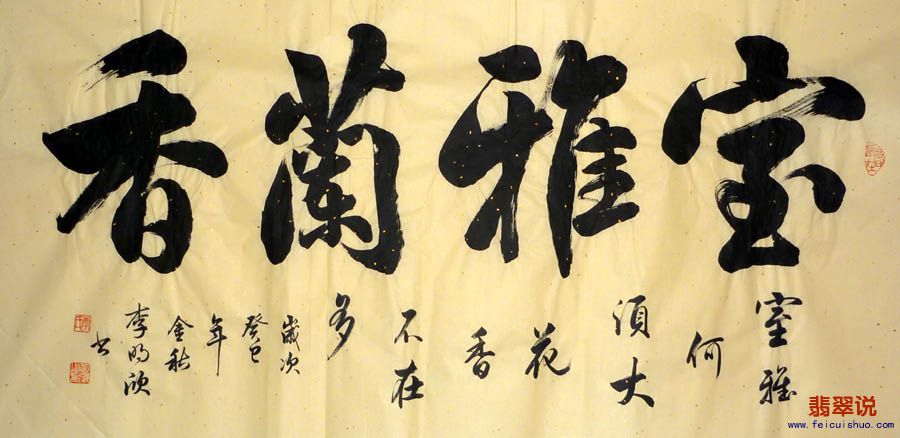 室雅蘭香
室雅
何
須大
花
香
不在
多
歲次
癸巳
年
金秋
李明欣
书
翡翠说
www.feicuishuo.com